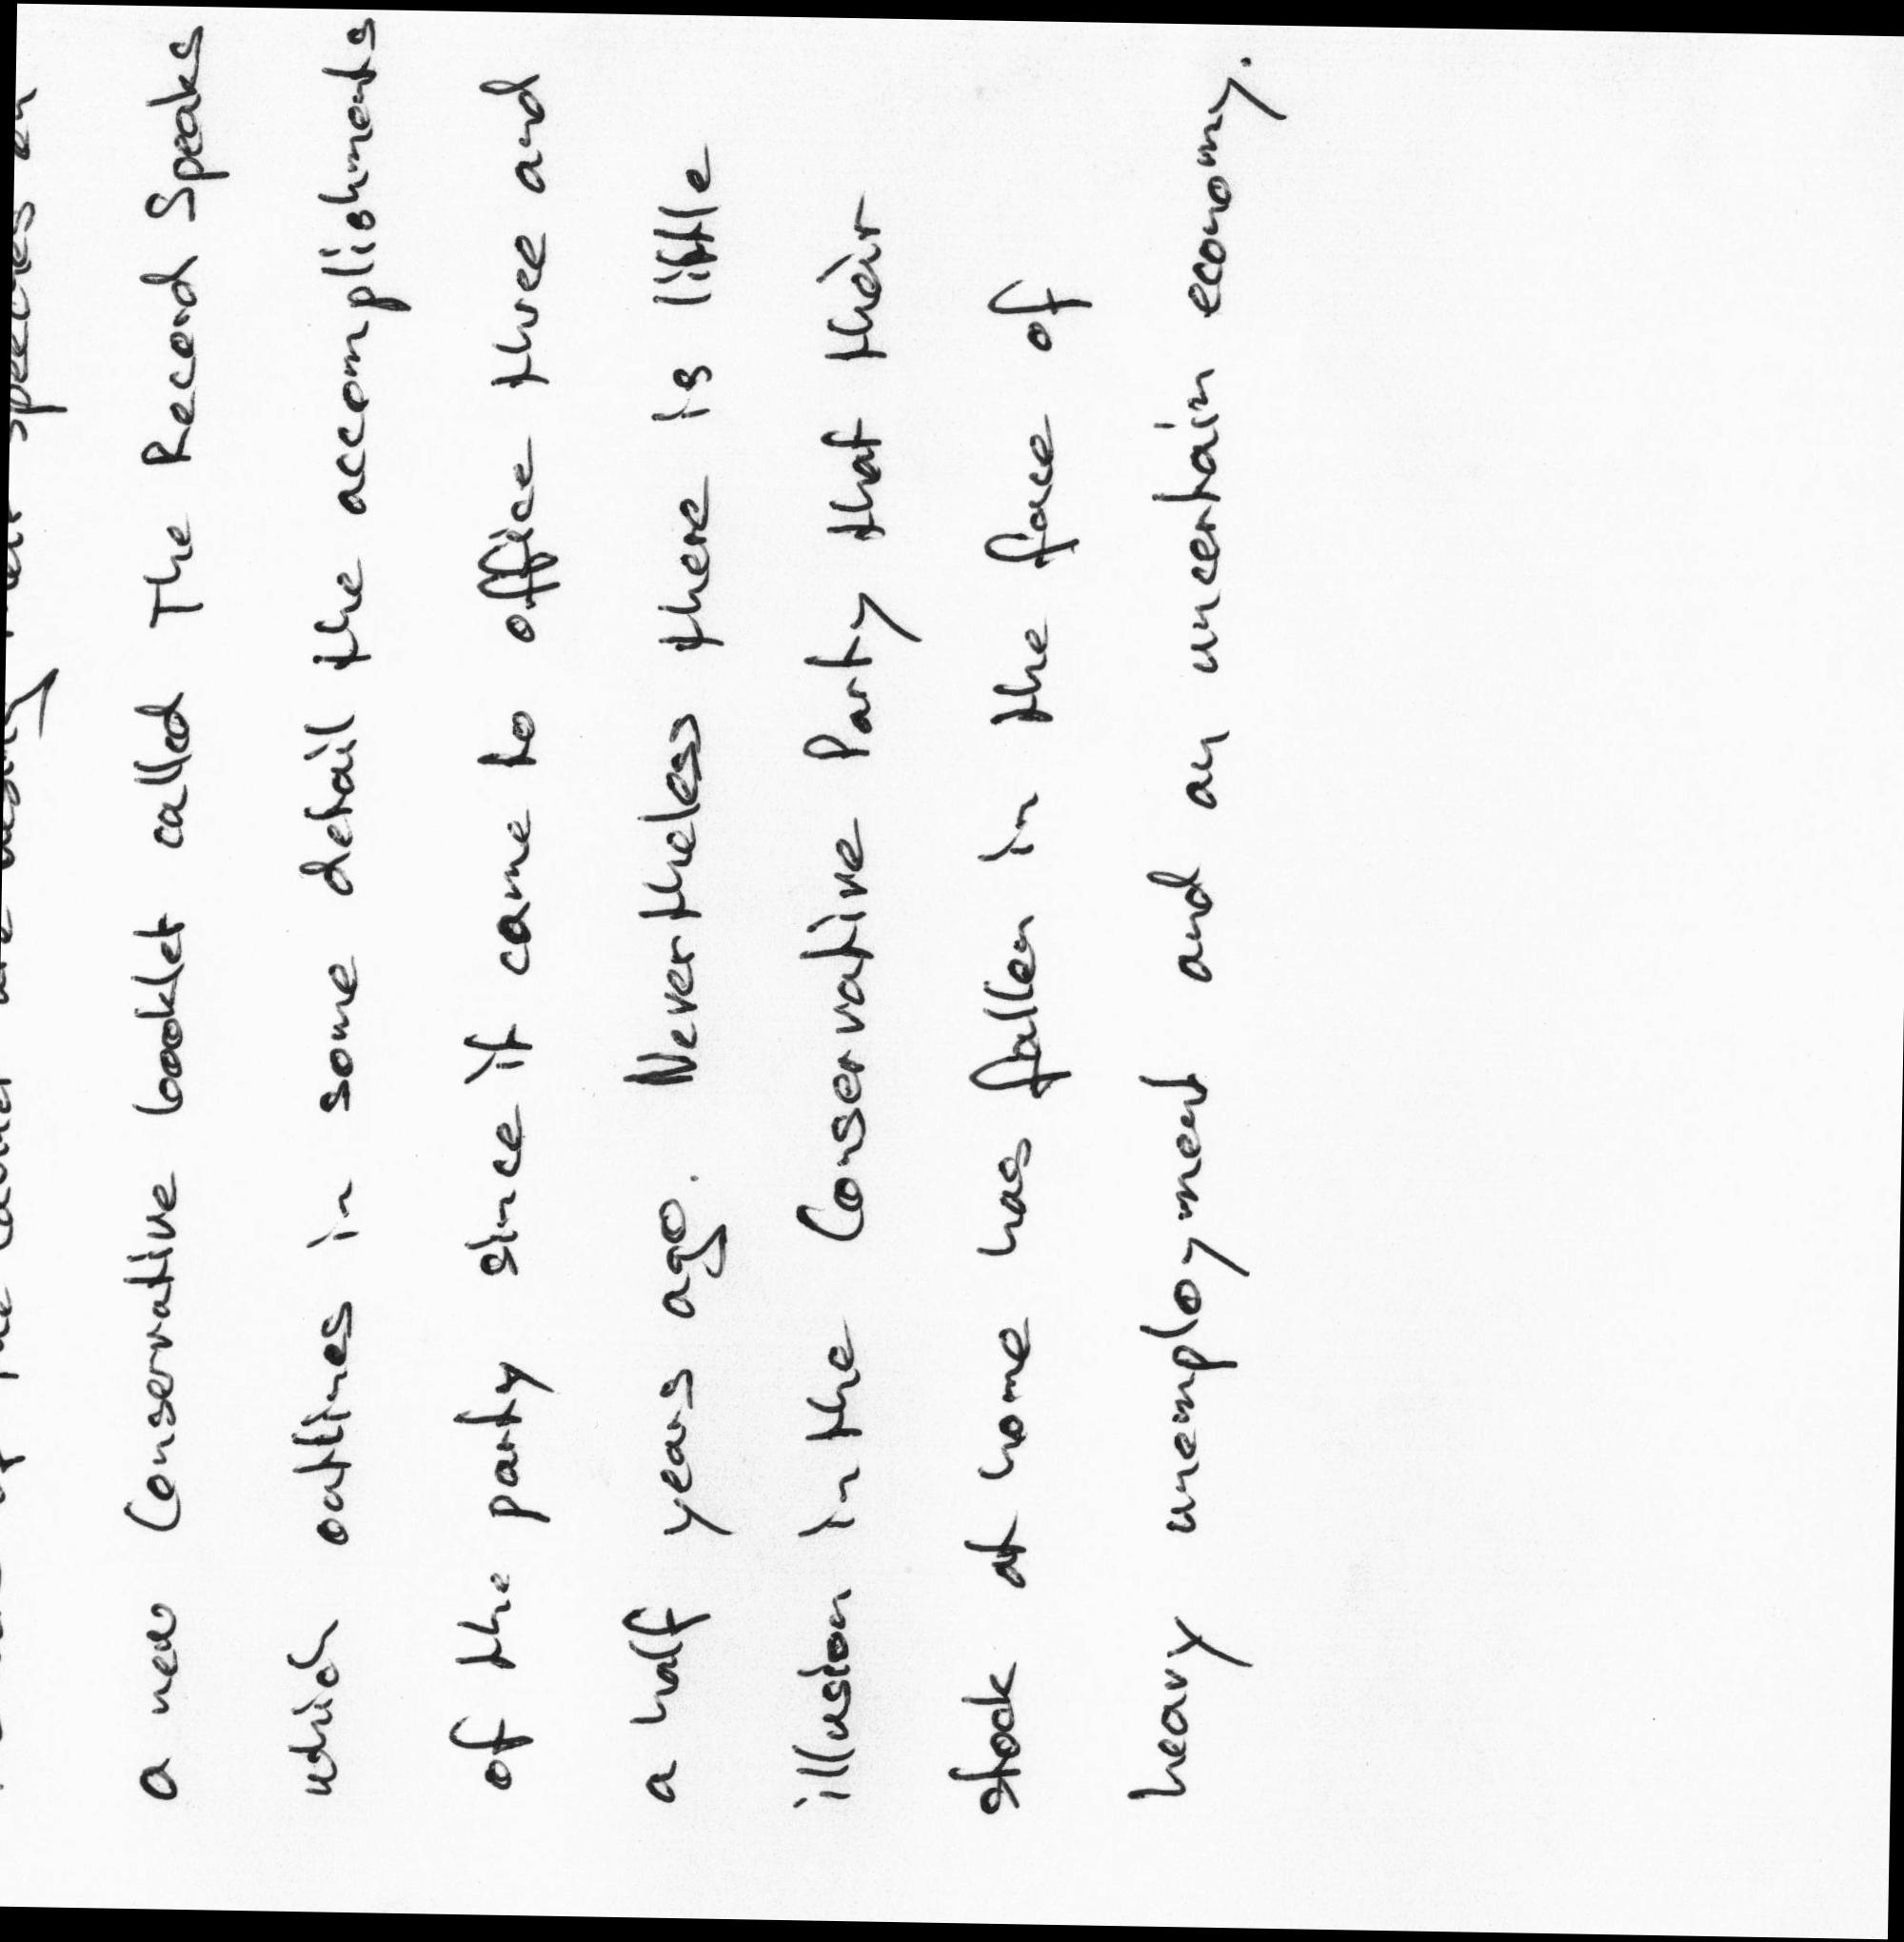 speeches on
a new Conservative booklet called The Record Speaks
which outlines in some detail the accomplishments
of the party since it came to office three and
a half years ago. Nevertheless there is little
illusion in the Conservative Party that their
stock at home has fallen in the face of
heavy unemployment and an uncertain economy.